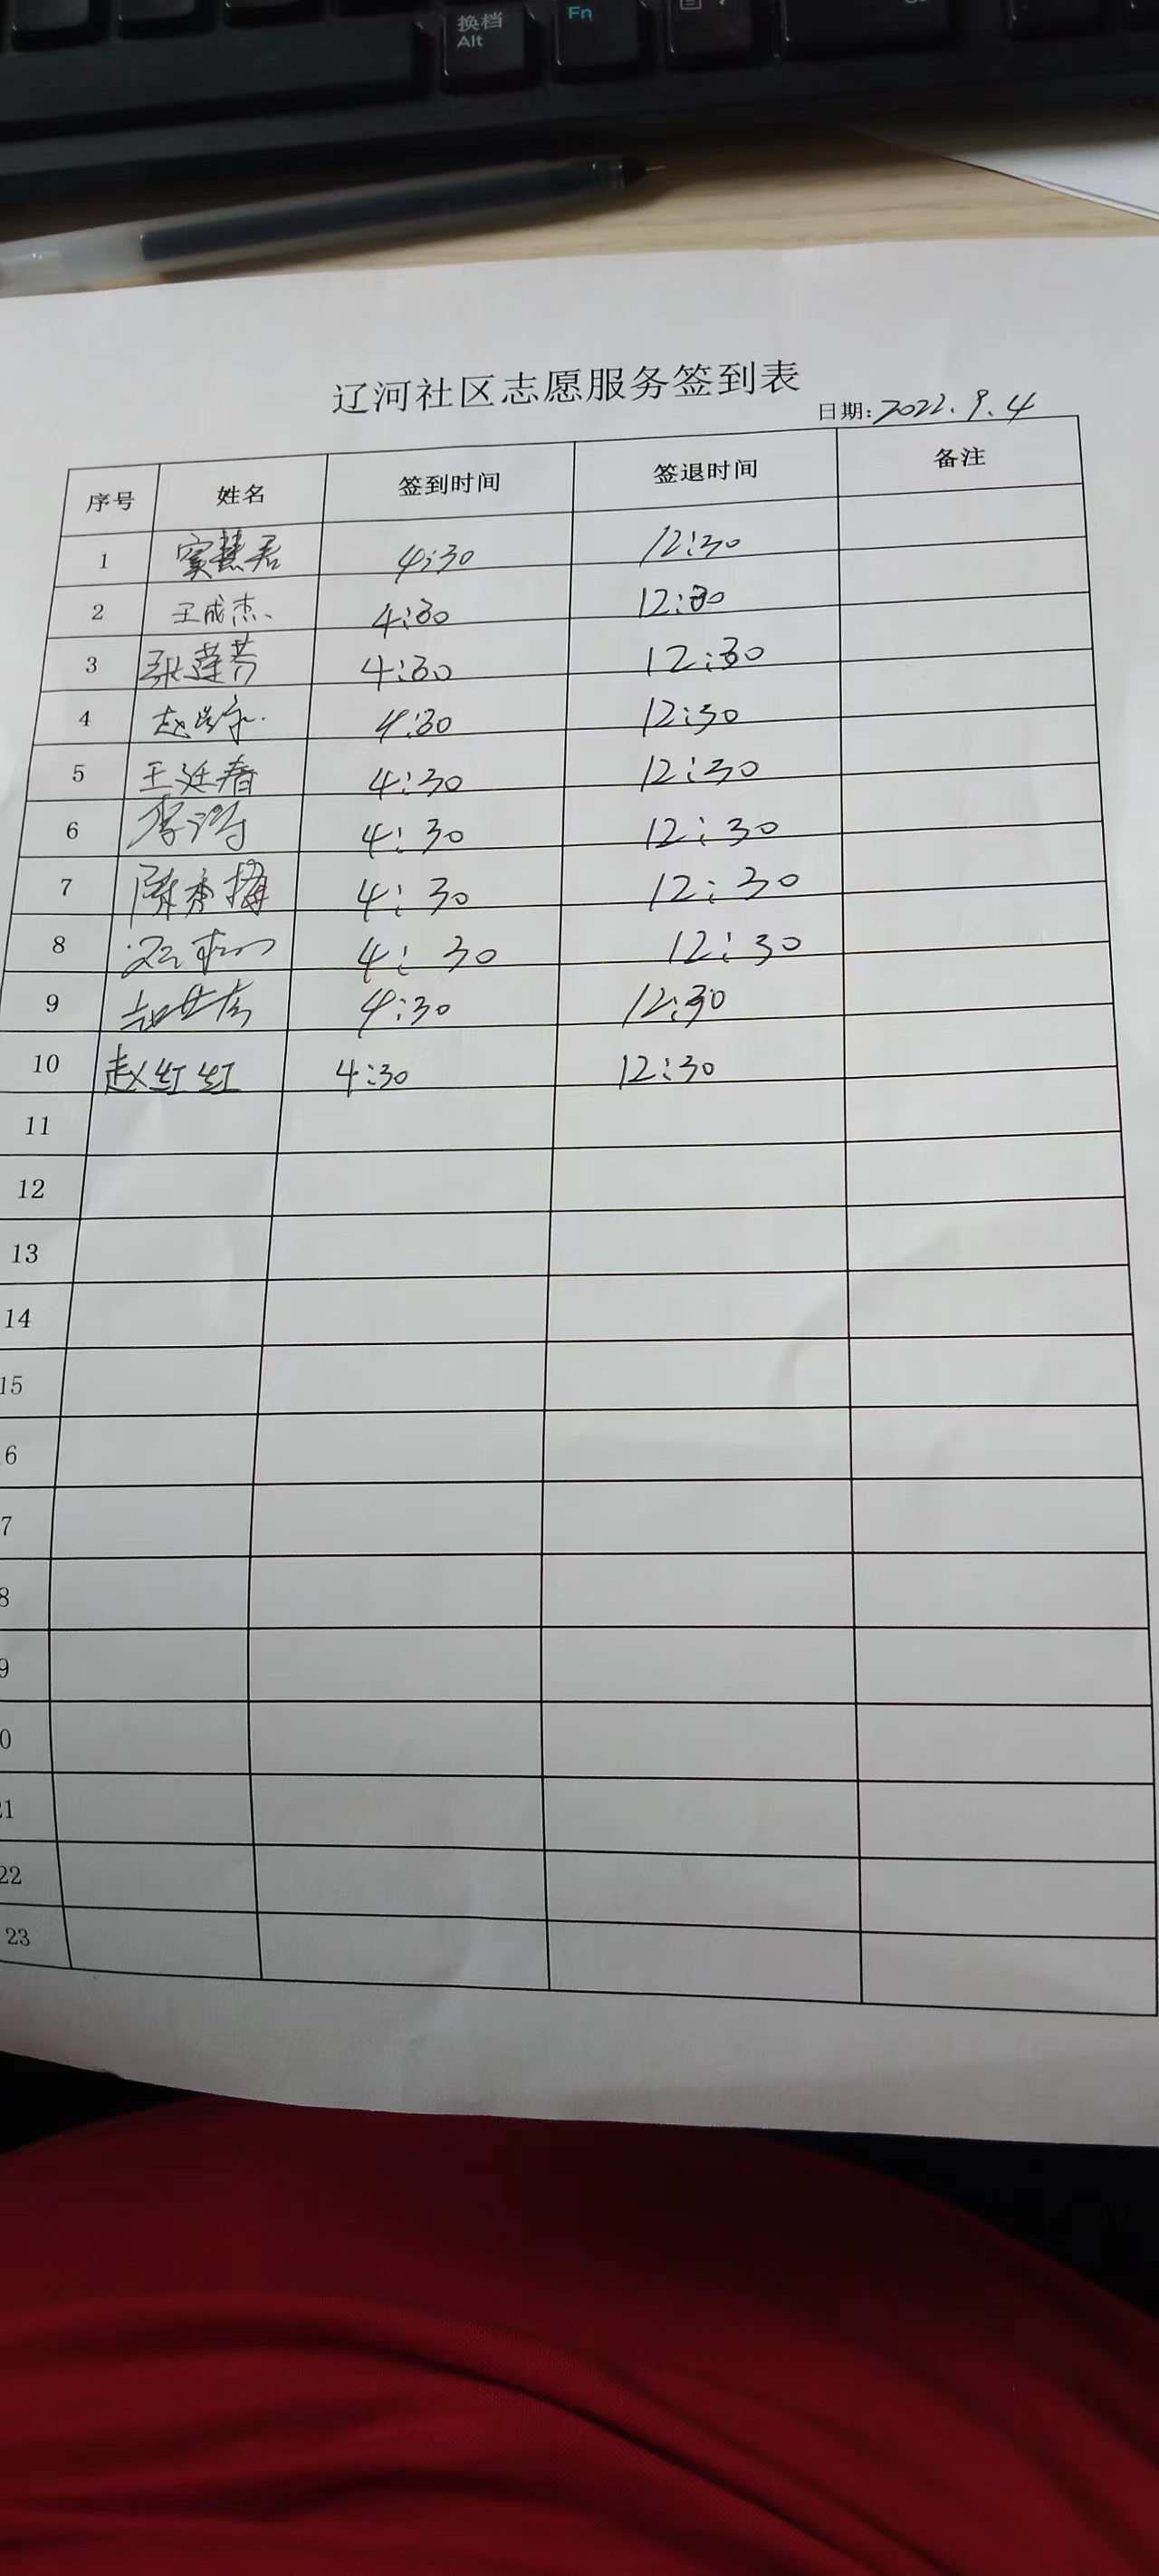 换档
Alt
Fn
辽河社区志愿服务签到表
日期:2022.9.4
序号 姓名 签到时间 签退时间 备注
1 窦慧君 4:30 12:30
2 王成杰 4:30 12:30
3 张莲芳 4:30 12:30
4 赵 4:30 12:30
5 王延春 4:30 12:30
6 李 4:30 12:30
7 陈秀梅 4:30 12:30
8 4:30 12:30
9 4:30 12:30
10 赵红红 4:30 12:30
11
12
13
14
15
6
7
8
9
0
21
22
23